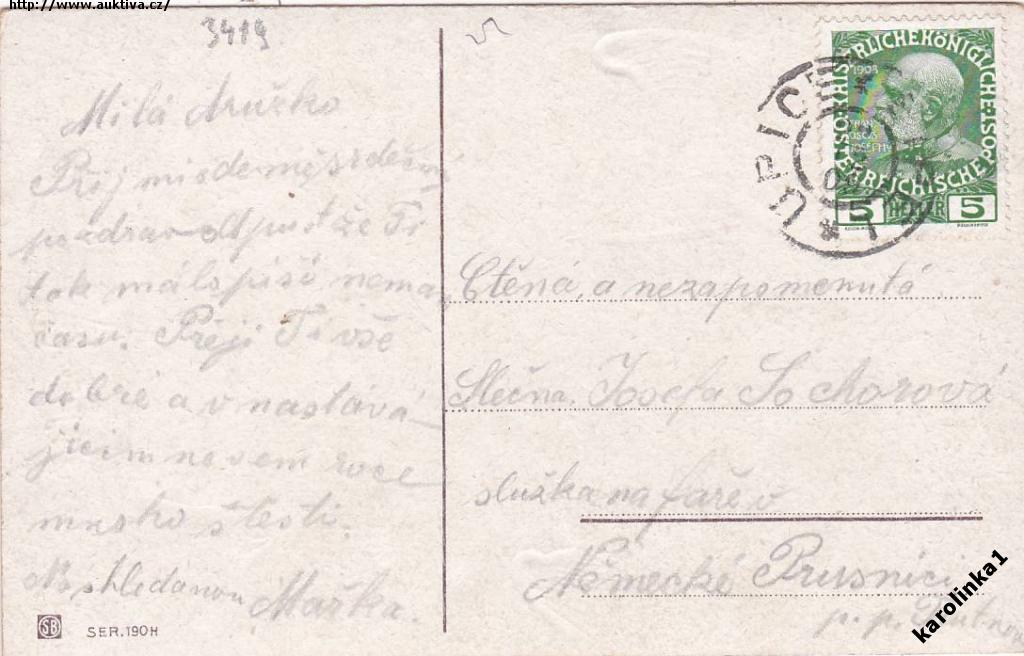 http://www.auktiva.cz/
3419
Milá družko
Přij mi
pozdrav Odpust že Ti
tak málo píší nemám
času. Přeji Ti vše
dobré a v nastáva-
jícím novem roce
mnoho štesti.
Na shledanou Mařka.
SB SER.190H
KAISERLICHE KÖNIGLICHE POST
ÖSTERREICHISCHE
1908
5 HELLER 5
ÚPICE
Ctěná, a nezapomenutá
Slečna, Josefa Sochorová
služka na faře v
Německé Prusnici
p. p. Trutnov
karolinka1